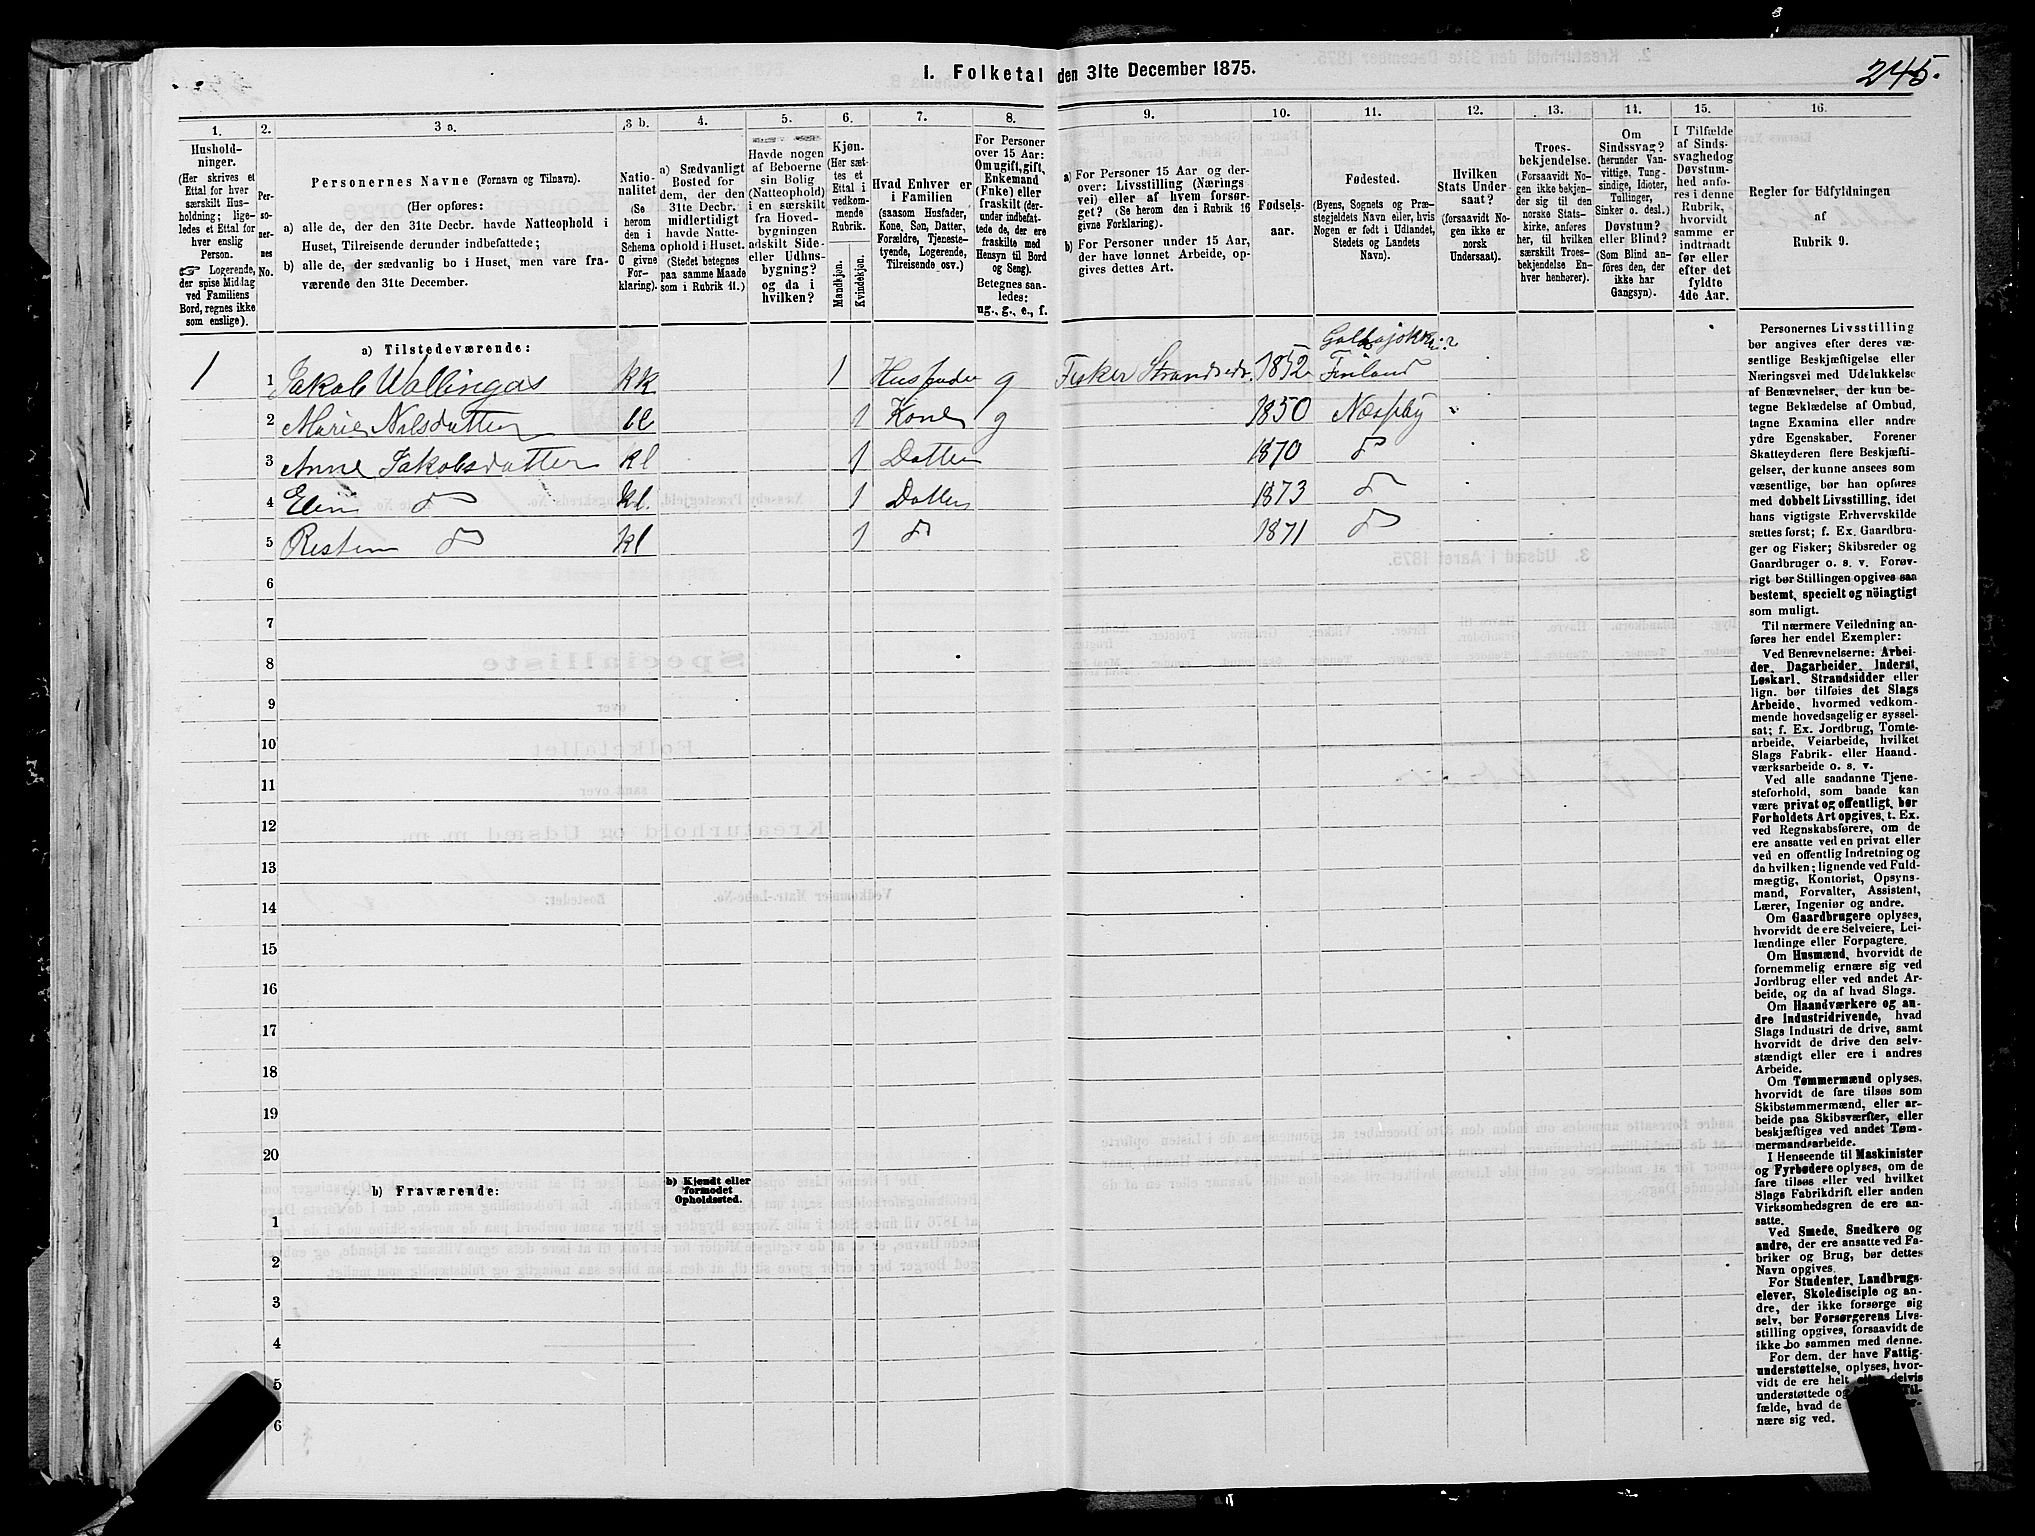 I. Folketal den 31te December 1875.
245.
1.
Hushold-
ninger.
(Her skrives et
Ettal for hver
særskilt Hus-
holdning; lige-
ledes et Ettal for
hver enslig
Person.
☞ Logerende,
der spise Middag
ved Familiens
Bord, regnes ikke
som enslige).
2.
Per-
so-
ner-
nes
No.
3 a.
Personernes Navne (Fornavn og Tilnavn).
(Her opføres:
a) alle de, der den 31te Decbr. havde Natteophold i
Huset, Tilreisende derunder indbefattede;
b) alle de, der sædvanlig bo i Huset, men vare fra-
værende den 31te December.
3 b.
Natio-
nalitet
(Se
herom
den i
Schema
C givne
For-
klaring).
4.
a) Sædvanligt
Bosted for
dem, der den
31te Decbr.
midlertidigt
havde Natte-
ophold i Huset.
(Stedet betegnes
paa samme Maade
som i Rubrik 11.)
5.
Havde nogen
af Beboerne
sin Bolig
(Natteophold)
i en særskilt
fra Hoved-
bygningen
adskilt Side-
eller Udhus-
bygning?
og da i
hvilken?
6.
Kjøn.
(Her sæt-
tes et
Ettal i
vedkom-
mende
Rubrik.
Mandkjøn.
Kvindekjøn.
7.
Hvad Enhver er
i Familien
(saasom Husfader,
Kone, Søn, Datter,
Forældre, Tjeneste-
tyende, Logerende,
Tilreisende osv.)
8.
For Personer
over 15 Aar:
Om ugift, gift,
Enkemand
(Enke) eller
fraskilt (der-
under indbefat-
tede de, der ere
fraskilte med
Hensyn til Bord
og Seng).
Betegnes saa-
ledes:
ug., g., e., f.
9.
a) For Personer 15 Aar og der-
over: Livsstilling (Nærings
vei) eller af hvem forsør-
get? (Se herom den i Rubrik 16
givne Forklaring).
b) For Personer under 15 Aar,
der have lønnet Arbeide, op-
gives dettes Art.
10.
Fødsels-
aar.
11.
Fødested.
(Byens, Sognets og Præ-
stegjeldets Navn eller, hvis
Nogen er født i Udlandet,
Stedets og Landets
Navn).
12.
Hvilken
Stats Under-
saat?
(forsaavidt No-
gen ikke er
norsk
Undersaat).
13.
Troes-
bekjendelse.
(Forsaavidt No-
gen ikke bekjen-
der sig til den
norske Stats-
kirke, anføres
her, til hvilken
særskilt Troes-
bekjendelse En-
hver henhører).
14.
Om
Sindssvag?
(herunder Van-
vittige, Tung-
sindige, Idioter,
Tullinger,
Sinker o. desl.)
Døvstum?
eller Blind?
(Som Blind an-
føres den, der
ikke har
Gangsyn).
15.
I Tilfælde
af Sinds-
svaghed og
Døvstum-
hed anfø-
res i denne
Rubrik,
hvorvidt
samme er
indtraadt
før eller
efter det
fyldte
4de Aar.
16.
Regler for Udfyldningen
af
Rubrik 9.
a) Tilstedeværende:
Finland
1 1 Jakob Wallingas kk 1 Husfader g Fisker Strandsdr. 1852
2 Marie Nilsdatter kl 1 Kone g 1850 Næsseby
3 Anne Jakobsdatter kl 1 Datter 1870 do
4 Elin do kl. 1 Datter 1873 do
5 Risten do kl 1 do 1871 do
6
7
8
9
10
11
12
13
14
15
16
17
18
19
20
b) Fraværende:
b) Kjendt eller
formodet
Opholdssted.
1
2
3
4
5
6
Personernes Livsstilling
bør angives efter deres væ-
sentlige Beskjæftigelse eller
Næringsvei med Udelukkelse
af Benævnelser, der kun be-
tegne Beklædelse af Ombud,
tagne Examina eller andre
ydre Egenskaber. Forener
Skatteyderen flere Beskjæfti-
gelser, der kunne ansees som
væsentlige, bør han opføres
med dobbelt Livsstilling, idet
hans vigtigste Erhvervskilde
sættes først; f. Ex. Gaardbru-
ger og Fisker; Skibsreder og
Gaardbruger o. s. v. Forøv-
rigt bør Stillingen opgives saa
bestemt, specielt og nöiagtigt
som muligt.
Til nærmere Veiledning an-
føres her endel Exempler:
Ved Benævnelserne: Arbei-
der, Dagarbeider, Inderst,
Løskarl, Strandsidder eller
lign. bør tilføies det Slags
Arbeide, hvormed vedkom-
mende hovedsagelig er syssel-
sat; f. Ex. Jordbrug, Tomte-
arbeide, Veiarbeide, hvilket
Slags Fabrik- eller Haand-
værksarbeide o. s. v.
Ved alle saadanne Tjene-
steforhold, som baade kan
være privat og offentligt, bør
Forholdets Art opgives, t. Ex.
ved Regnskabsførere, om de
ere ansatte ved en privat eller
ved en offentlig Indretning og
da hvilken; lignende ved Fuld-
mægtig, Kontorist, Opsyns-
mand, Forvalter, Assistent,
Lærer, Ingeniør og andre.
Om Gaardbrugere oplyses,
hvorvidt de ere Selveiere, Lei-
lændinge eller Forpagtere.
Om Husmænd, hvorvidt de
fornemmelig ernære sig ved
Jordbrug eller ved andet Ar-
beide, og da af hvad Slags.
Om Haandværkere og an-
dre industridrivende, hvad
Slags Industri de drive, samt
hvorvidt de drive den selv-
stændigt eller ere i andres
Arbeide.
Om Tømmermænd oplyses,
hvorvidt de fare tilsøs som
Skibstømmermænd, eller ar-
beide paa Skibsværfter, eller
beskjæftiges ved andet Tøm-
mermandsarbeide.
I Henseende til Maskinister
og Fyrbødere oplyses, om de
fare tilsøs eller ved hvilket
Slags Fabrikdrift eller anden
Virksomhedsgren de ere an-
satte.
Ved Smede, Snedkere og
andre, der ere ansatte ved Fa-
briker og Brug, bør dettes
Navn opgives.
For Studenter, Landbrugs-
elever, Skoledisciple og an-
dre, der ikke forsørge sig
selv, bør Forsørgerens Livs-
stilling opgives, forsaavidt de
ikke bo sammen med denne.
For dem, der have Fattig-
understøttelse, oplyses, hvor-
vidt de ere helt eller delvis
understøttede og
fælde, hvad de
nære sig ved.